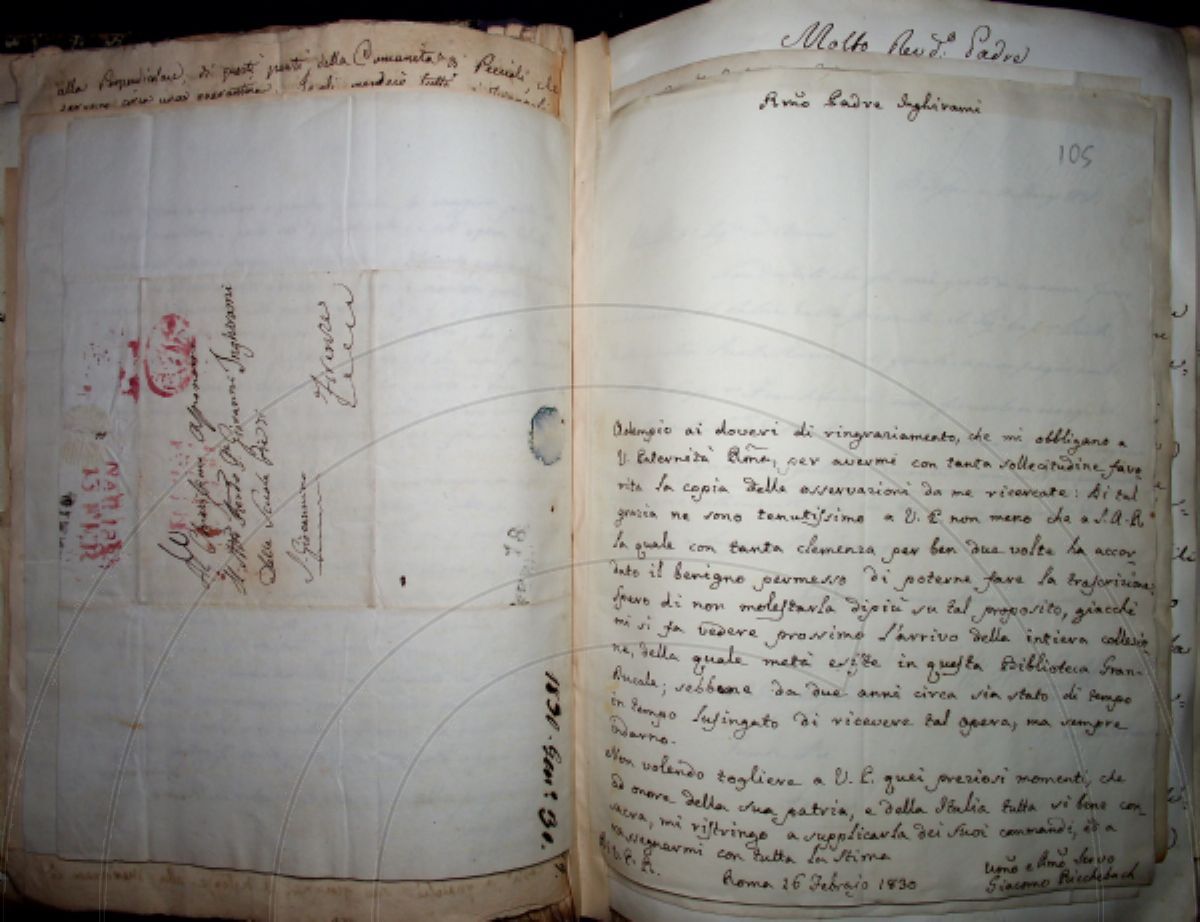 alla Perpendicolare, di questi punti della Comunità di Peccioli, che
Al Chiarissimo
Il Molto Rev.do P. Giovanni Inghirami
Delle Scuole Pie
S. Giovannino
Firenze
1831. Genn. 30.
Molto Revd.o Padre
Rmo Padre Inghirami
105
Adempio ai doveri di ringraziamento, che mi obbligano a
V. Paternità Rma, per avermi con tanta sollecitudine favo
rita la copia delle osservazioni da me ricercate: Di tal
grazia ne sono tenutissimo a V. P. non meno che a S. A. R.
la quale con tanta clemenza per ben due volte ha accor
dato il benigno permesso di poterne fare la trascrizione:
spero di non molestarla dipiù su tal proposito, giacchè
mi si fa vedere prossimo l'arrivo della intiera collezio
ne, della quale metà esiste in questa Biblioteca Gran-
Ducale; sebbene da due anni circa sia stato di tempo
in tempo lusingato di ricevere tal opera, ma sempre
indarno.
Non volendo togliere a V. P. quei preziosi momenti, che
ad onore della sua patria, e della Italia tutta si bene con
sacra, mi ristringo a supplicarla dei suoi commandi, ed a
rassegnarmi con tutta la stima
Di V. P. R.
Roma 26 Febrajo 1830
Umo e Rmo Servo
Giacomo Ricchebach